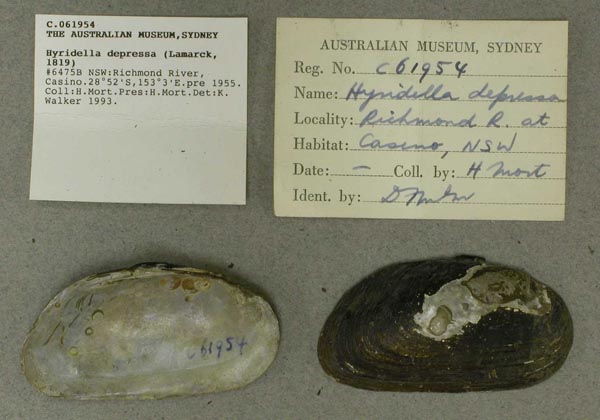 C.061954
THE AUSTRALIAN MUSEUM,SYDNEY
Hyridella depressa (Lamarck,
1819)
#6475B NSW:Richmond River,
Casino.28°52'S,153°3'E.pre 1955.
Coll:H.Mort.Pres:H.Mort.Det:K.
Walker 1993.
AUSTRALIAN MUSEUM, SYDNEY
Reg. No. C61954
Name: Hyridella depressa
Locality: Richmond R. at
Habitat: Casino, NSW
Date: — Coll. by: H Mort
Ident. by:
C61954